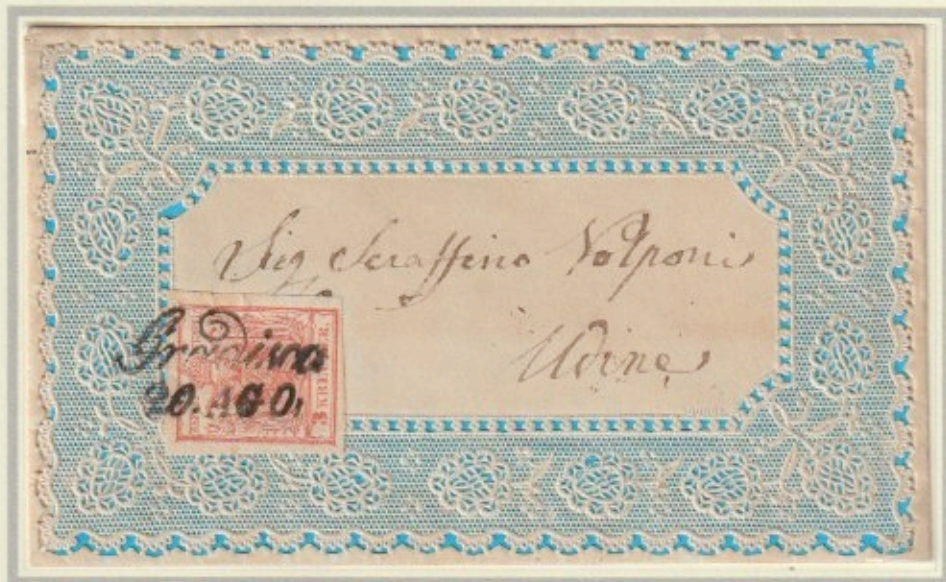 Sig Seraffino Volponi
Udine
Gradisca
20. AGO.
3 KREUZER